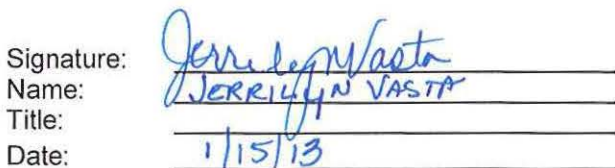 Signature: Jerrilyn Vasta
Name: JERRILYN VASTA
Title:
Date: 1/15/13